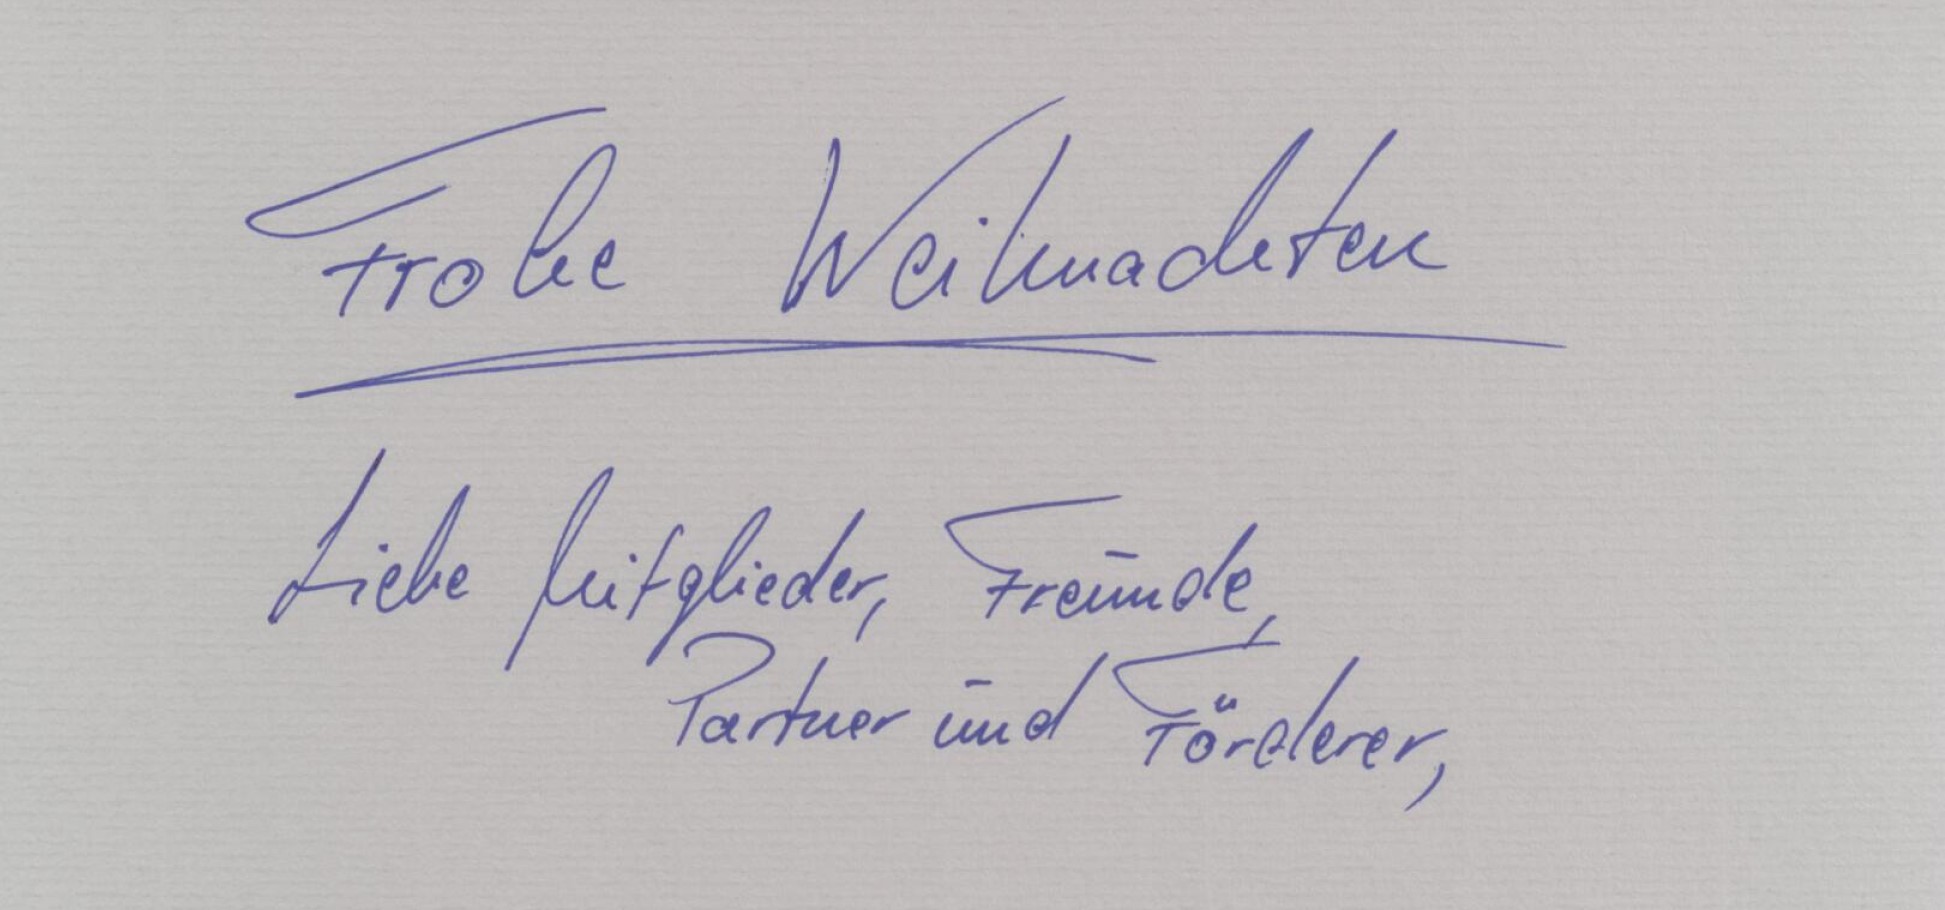 Frohe Weihnachten
Liebe Mitglieder, Freunde,
Partner und Förderer,